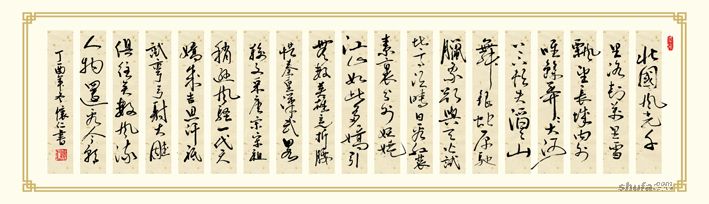 北國風光千
里冰封萬里雪
飄望長城内外
唯餘莽莽大河
上下頓失滔滔山
舞銀蛇原馳
臘象欲與天公試
比高須晴日看紅裝
素裹分外妖嬈
江山如此多嬌引
無數英雄競折腰
惜秦皇漢武略
輸文采唐宗宋祖
稍遜風騷一代天
嬌成吉思汗祇
識彎弓射大雕
俱往矣數風流
人物還看今朝
丁酉年冬懷仁書
shufa.com